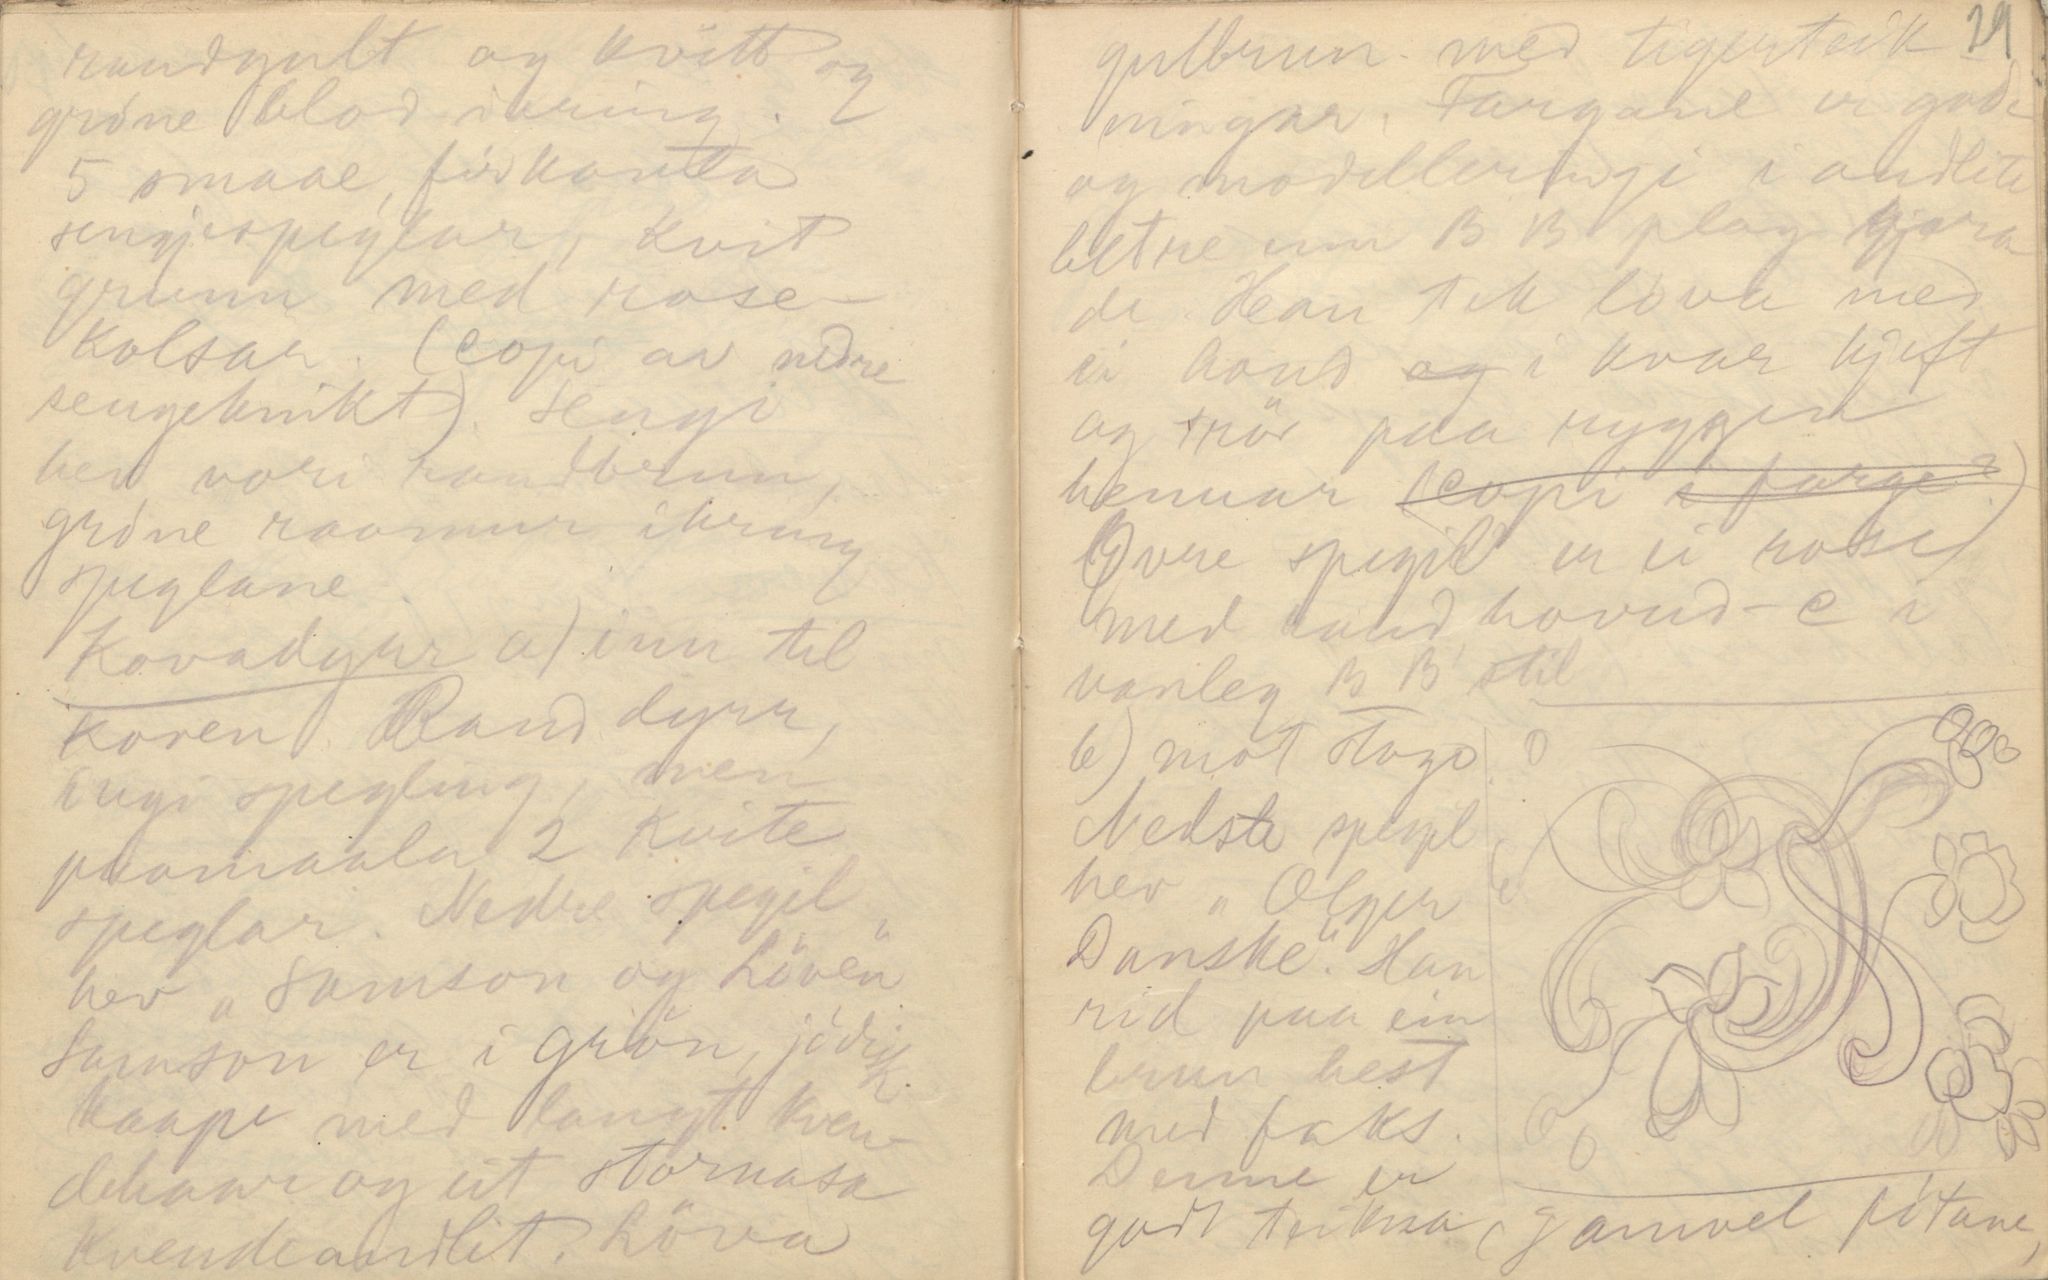 raudgult og kvitt og
gróne blad ikring.
5 smaae, firkanta
sengjespeglar, kvit
grunn med rose-
kolsar. (Copi av nedre
sengebrikt). Sengi
hev vori raudbrun,
gróne raamur ikring
speglane.
Kovadyrr a) inn til
koven. Raud dyrr,
ingi spegling, men
paamaala 2 kvite
speglar. Nedre spegil
hev „Samson og Löven"
Samson er i grön, jödisk
kaape med langt kven-
dehaar og eit stornasa
kvendeandlit. Löva
29
gulbrun med tigerteik
ningar. Fargane er gode
og modelleringi i andlite
betre enn B B plag gjera
de. Han tek löva med
ei hond og i kvar kjeft
og trör paa ryggen
hennar (Copi i farge?)
Övre spegil er ei rose
med raud hovud-C i
vanleg B B stil
b) mot stogo.
Nedste spegil
hev „Olger
Danske". Han
rid paa ein
brun hest
med faks.
Denne er
godt teikna, gamvel fótane,